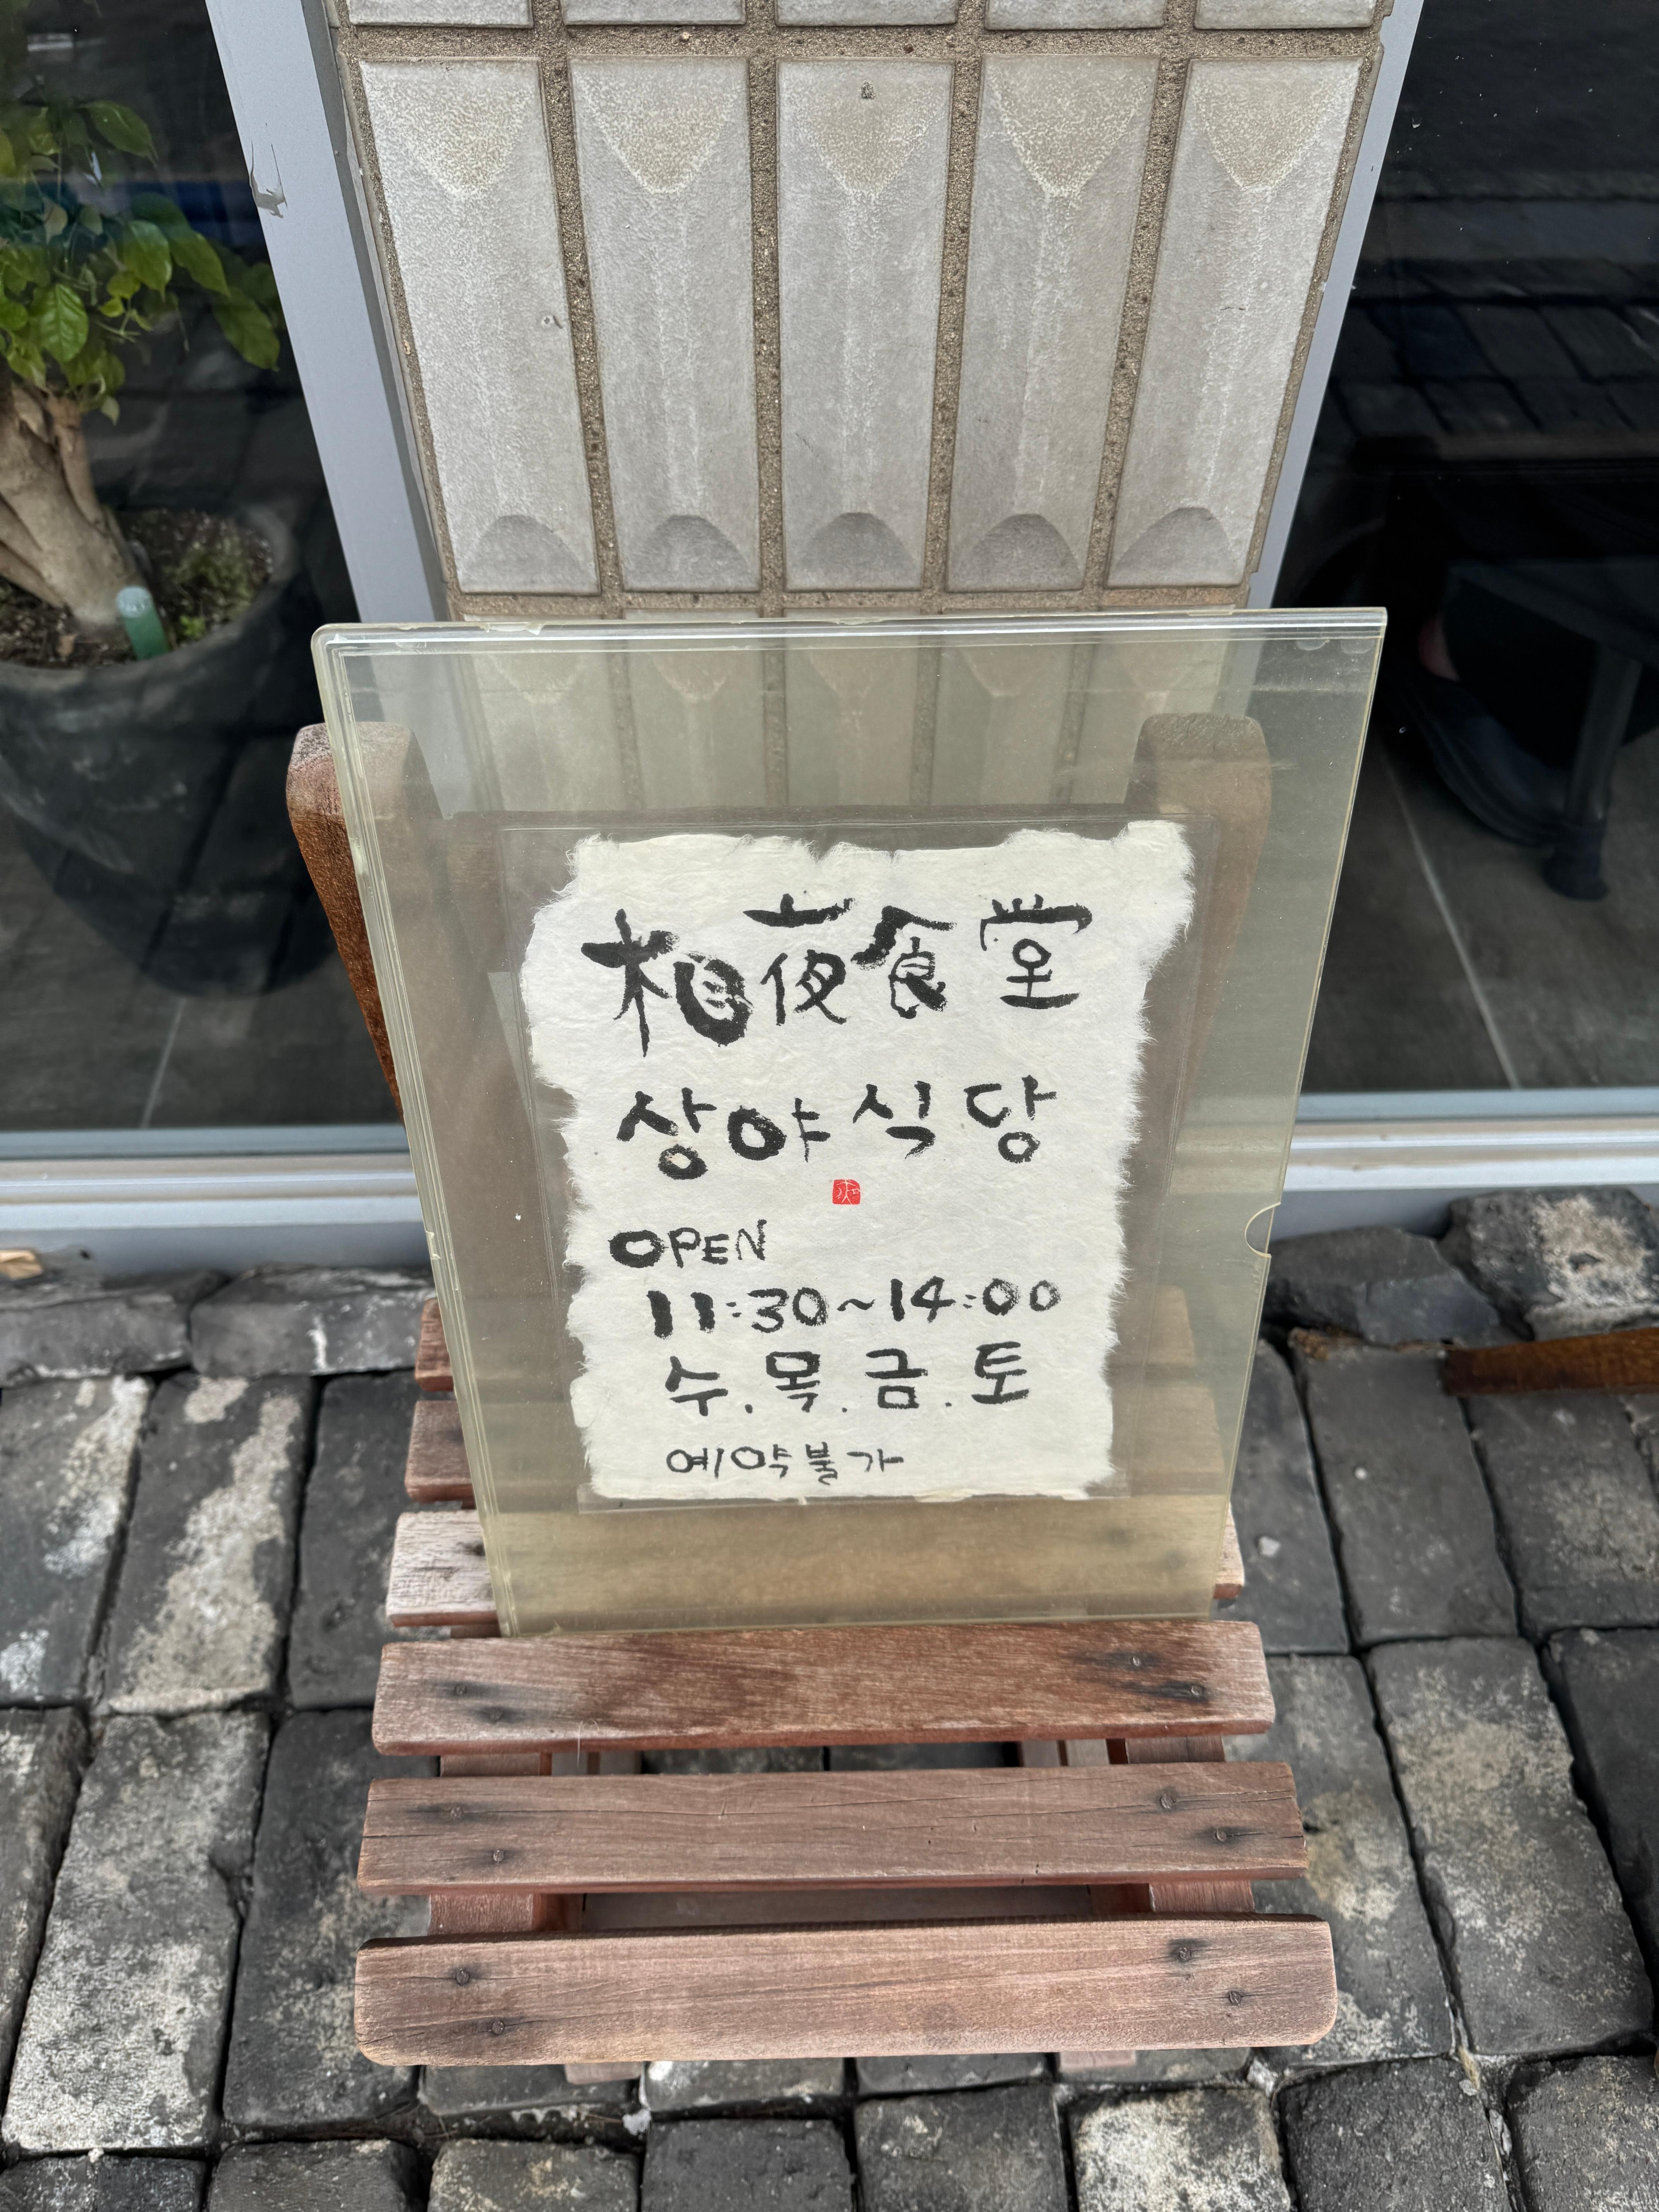 相夜食堂
상야식당
OPEN
11:30~14:00
수.목.금.토
예약불가